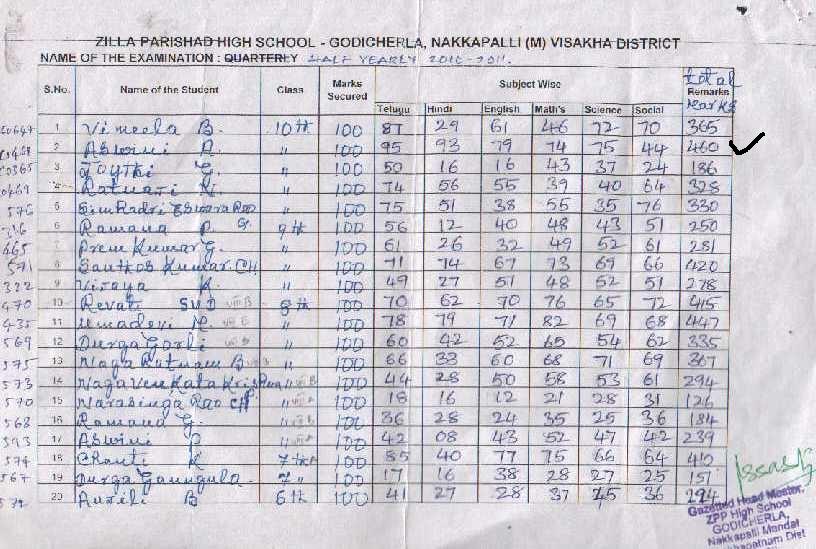 ZILLA PARISHAD HIGH SCHOOL - GODICHERLA, NAKKAPALLI (M) VISAKHA DISTRICT
NAME OF THE EXAMINATION : QUARTERLY HALF YEARLY 2010-2011.
S.No. Name of the Student Class Marks Secured Subject Wise total Remarks Marks
Telugu Hindi English Math's Science Social
1 Vimeela B. 10th 100 87 29 61 46 72 70 365
2 Aswini A. " 100 95 93 79 74 75 44 460
365 3 Joythi G. " 100 50 16 16 43 37 24 186
469 4 Ratnari K. " 100 74 56 55 39 40 64 328
576 5 Simhadri Eswara Rao " 100 75 51 38 55 35 76 330
6 Ramana P. 9th 100 56 12 40 48 43 51 250
465 7 Prem Kumar G. " 100 61 26 32 49 52 61 281
571 8 Santhos Kumar. CH " 100 71 74 67 73 69 66 420
322 9 Vijaya K. " 100 49 27 51 48 52 51 278
470 10 Revati SVD VIII B 8th 100 70 62 70 76 65 72 415
435 11 Umadevi M. VIII B " 100 78 79 71 82 69 68 447
569 12 Durga Gorli " 100 60 42 52 65 54 62 335
575 13 Naga Ratnam B " 100 66 33 60 68 71 69 367
573 14 Naga Venkata Krishna " VIII B 100 44 28 50 58 53 61 294
570 15 Narasinga Rao CH " 100 18 16 12 21 28 31 126
568 16 Ramana G. " 100 36 28 24 35 25 36 184
593 17 Aswini P " 100 42 08 43 52 47 42 239
574 18 Chanti K 7th 100 85 40 77 75 66 64 410
567 19 Durga Gaungula 7 " 100 17 16 38 28 27 25 151
572 20 B 6th 100 41 27 28 37 45 36
Gazetted Head Master,
ZPP High School
GODICHERLA,
Nakkapalli Mandal
Dist